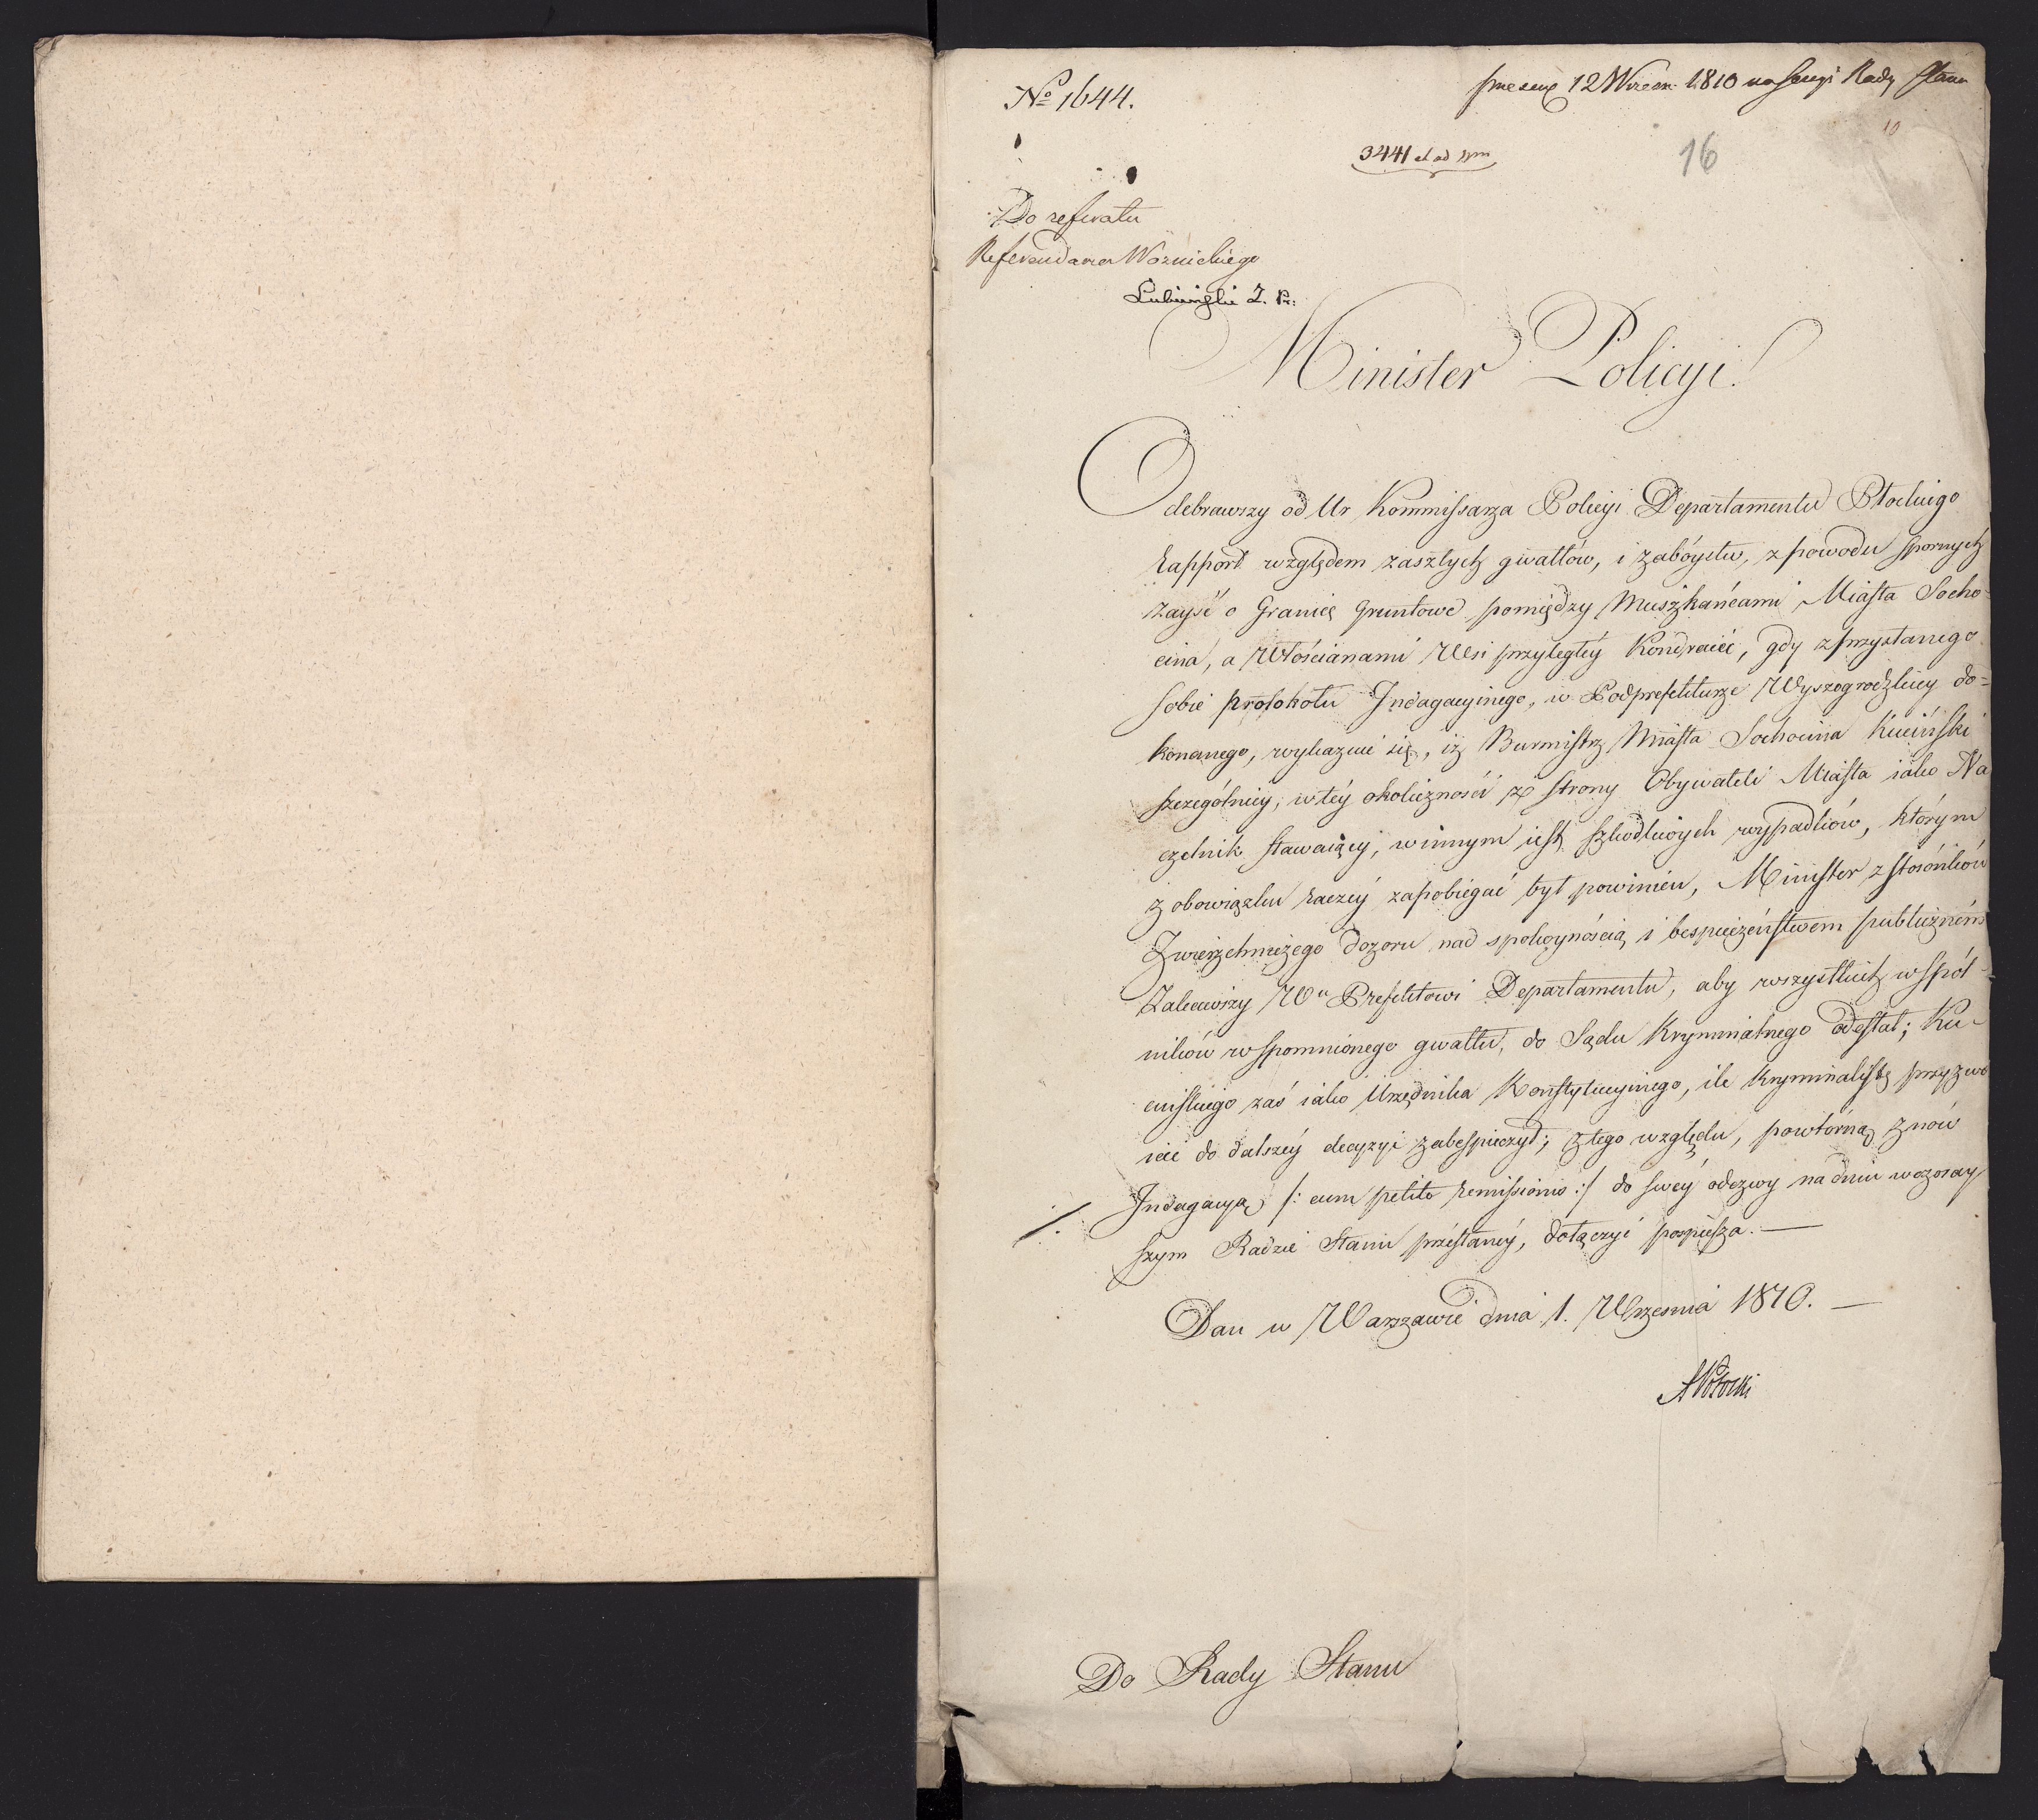 No 1644.
praesent 12 Wrzesn: 1810 na sessyi Rady Stanu
10
3441 et ad
16
Do referatu
Referendarza Woznickiego
Minister Policyi!
Odebrawszy od Ur Kommissarza Policyi Departamentu Płockiego
Rapport względem zaszłych gwałtów, i zabóystw, z powodu spornych
zayść o Granicę gruntowe pomiędzy Mieszkańcami Miasta Socho-
cina, a Włościanami Wsi przyległey Kondraiéc, gdy z przysłanego
sobie protokołu Indagacyinego, w Podprefekturze Wyszogrodzkiey do-
konanego, wykazuie się, iż Burmistrz Miasta Sochocina Kuciński
szczególniey, w téy okoliczności ze strony Obywateli Miasta iako Na
czelnik stawaiący, winnym iest szkodliwych wypadków, którym
z obowiązku raczey zapobiegać był powinien, Minister z stosónków
Zwierzchniczego dozoru nad spokoynością i bespieczeństwem publicznem
Zaleciwszy Wu Prefektowi Departamentu, aby wszystkich wspól-
ników wspomnionego gwałtu, do Sądu Kryminalnego odesłał; Ku-
cinskiego zaś iako Urzędnika Konstytucyinego, ile kryminalistę przyzwo
icie do dalszey decyzyi zabespieczył; z tego względu, powtórną znów
Indagacyą /: cum petito remissionis :/ do swey odezwy na dniu wczoray
szym Radzie Stanu przesłaney, dołączyć pospiesza. —
Dan w Warszawie dnia 1. Września 1810. —
APotocki
Do Rady Stanu